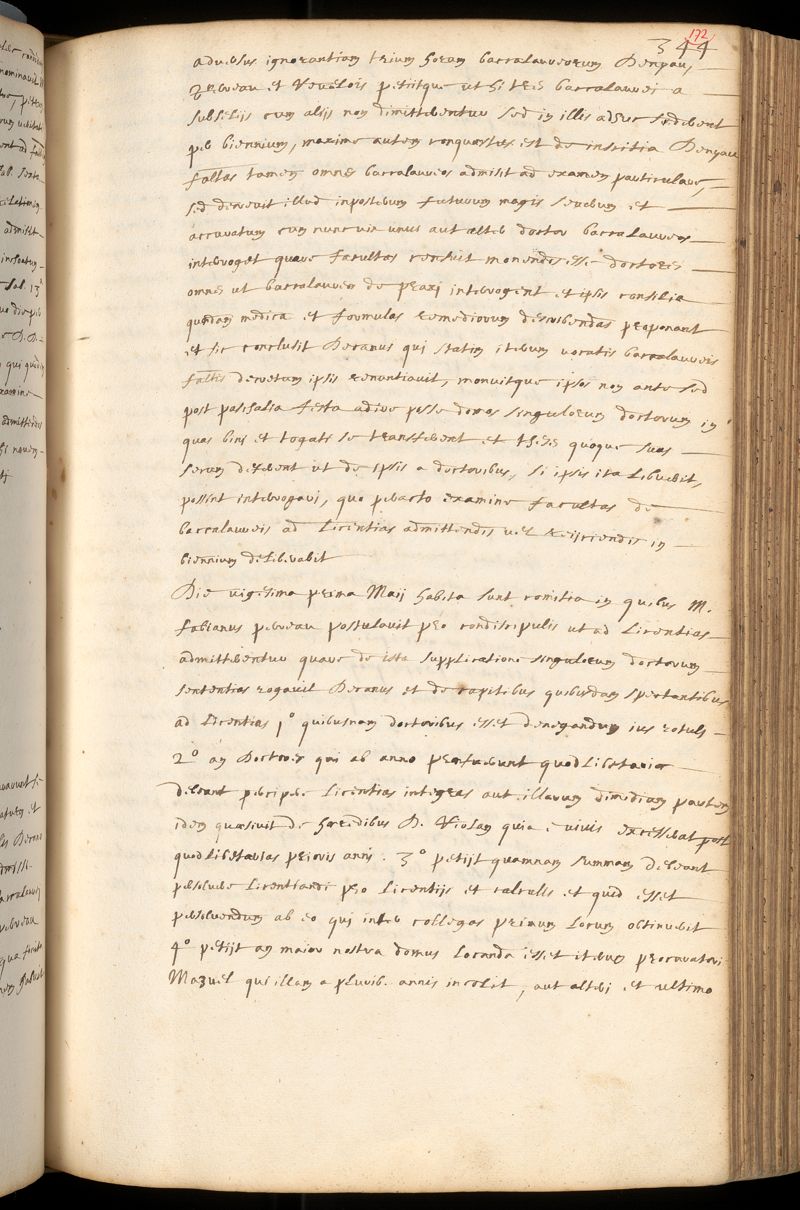 172
344
adversus ignorantiam trium horum baccalaureorum Denyau
Perreau et Revelois petiitque ut hi tres baccalaurei a
subselijs cum alijs non dimitterentur sed in illis adhuc sederent
per biennium, maxime autem conquestus est de inscitia Denyau
facultas tamen omnes baccalaureos admisit ad examen particulare,
sed decrevit illud inposterum futurum magis severum et
accuratum cum nunc vix unus aut alter doctor baccalaureos
interroget quare facultas censuit monendos esse doctores
omnes ut baccalaureos de praxi interrogent et ipsis consilia
quædam medica et formulas remediorum describendas proponant
et sic conclusit Decanus qui statim iterum vocatis baccalaureis
facltis decretum ipsis renuntiavit, monuitque ipsos non ante sed
post paschalia festa adire posse domos singulorum doctorum in
quas bini et togati se transferent et theses quoque suas
secum deferent ut de ipsis a doctoribus, si ipsis ita libuerit,
possint interrogari, quo peracto examine facultas de
baccalaureis ad Licentias admittendis vel reijciendis in
biennium deliberabit
Die vigesima prima Maij habita sunt comitia in quibus M.
fabianus perreau postulavit pro condiscipulis ut ad Licentias
admitterentur quare de ista supplicatione singulorum doctorum
sententias rogavit Decanus et de capitibus quibusdam spectantibus
ad Licentias 1o quibusnam doctoribus esset denegandum ius rotuli
2o an Doctores qui ab anno præfuerunt quodlibetarijs
debeant percipere Licentias integras aut illarum dimidiam partem
idem quæsivit de hæredibus D. Violam quia e vivis excesserat post
quodlibetarias prioris anni. 3o petijt quamnam summam debeant
persolvere Licentiandi pro Licentijs et calculis et quid esset
persolvendum ab eo qui inter collegas primum Locum obtinuerit
4o petijt an maior nostra domus Locanda esset iterum procuratori
Mazuel qui illam a plurib. annis incolit, aut alteri et ultimo